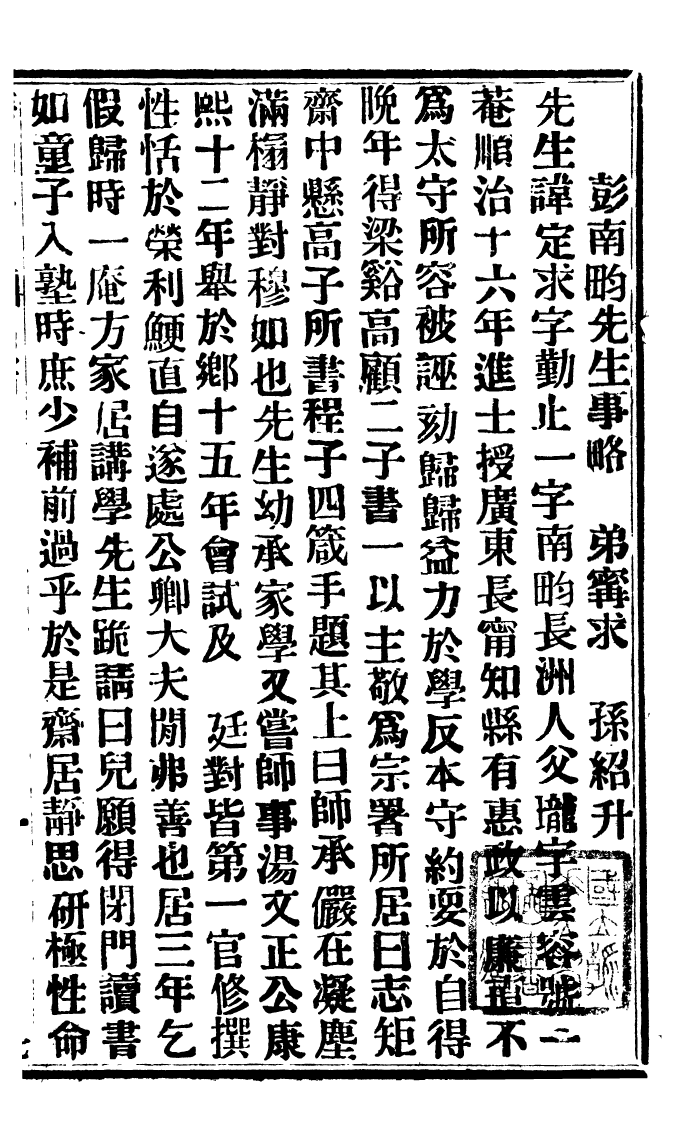 彭南畇先生事略　弟寗求　孫紹升
先生諱定求字勤止一字南畇長洲人父瓏字雲客號一
菴順治十六年進士授廣東長甯知縣有惠政以廉直不
爲太守所容被誣劾歸歸益力於學反本守約要於自得
晚年得梁谿高顧二子書一以主敬爲宗署所居曰志矩
齋中懸高子所書程子四箴手題其上曰師承儼在凝塵
滿榻靜對穆如也先生幼承家學又嘗師事湯文正公康
熙十二年舉於鄉十五年會試及　廷對皆第一官修撰
性恬於榮利鯁直自遂處公卿大夫閒弗善也居三年乞
假歸時一庵方家居講學先生跪請曰兒願得閉門讀書
如童子入塾時庶少補前過乎於是齋居靜思研極性命